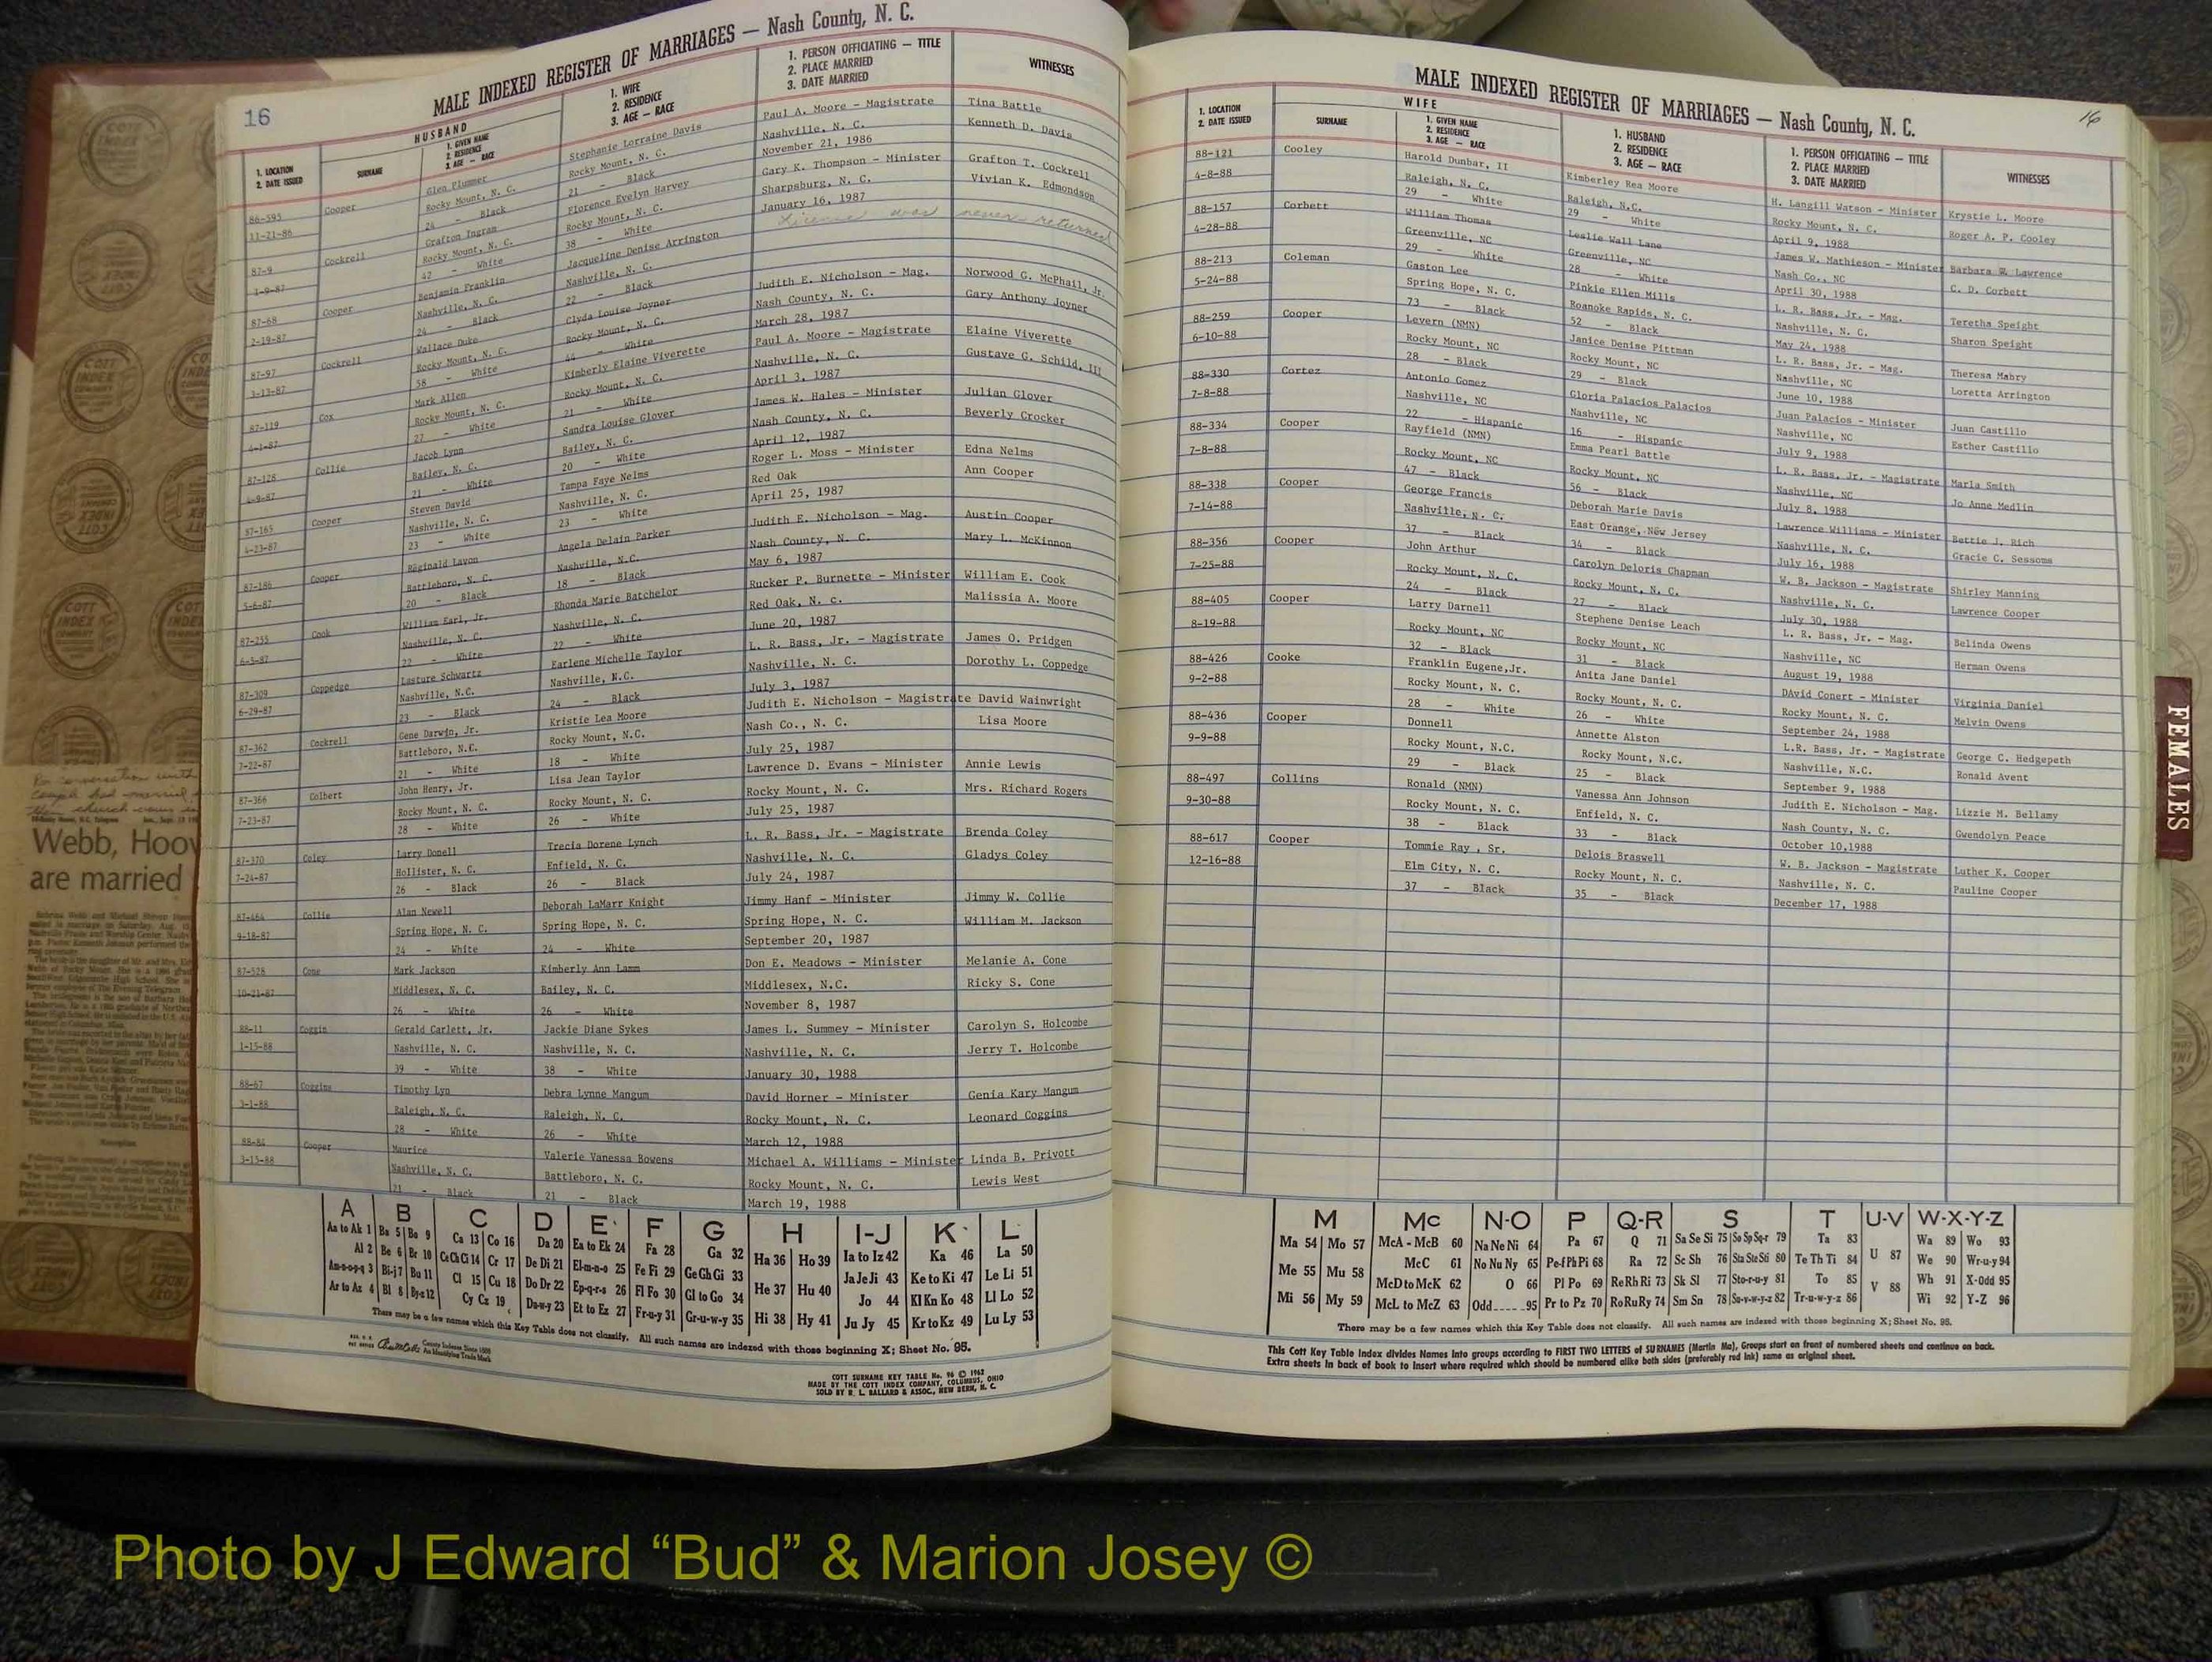 16
MALE INDEXED REGISTER OF MARRIAGES — Nash County, N. C.
1. LOCATION
2. DATE ISSUED
HUSBAND
SURNAME
1. GIVEN NAME
2. RESIDENCE
3. AGE — RACE
1. WIFE
2. RESIDENCE
3. AGE — RACE
1. PERSON OFFICIATING — TITLE
2. PLACE MARRIED
3. DATE MARRIED
WITNESSES
86-595 Cooper Glen Plummer Stephanie Lorraine Davis Paul A. Moore - Magistrate Tina Battle
11-21-86 Rocky Mount, N. C. Rocky Mount, N. C. Nashville, N. C. Kenneth D. Davis
24 - Black 21 - Black November 21, 1986
87-9 Cockrell Grafton Ingram Florence Evelyn Harvey Gary K. Thompson - Minister Grafton T. Cockrell
1-9-87 Rocky Mount, N. C. Rocky Mount, N. C. Sharpsburg, N. C. Vivian K. Edmondson
42 - White 38 - White January 16, 1987
87-68 Cooper Benjamin Franklin Jacqueline Denise Arrington License was never returned
2-19-87 Nashville, N. C. Nashville, N. C.
24 - Black 22 - Black
87-97 Cockrell Wallace Duke Clyda Louise Joyner Judith E. Nicholson - Mag. Norwood G. McPhail, Jr.
3-13-87 Rocky Mount, N. C. Rocky Mount, N. C. Nash County, N. C. Gary Anthony Joyner
58 - White 44 - White March 28, 1987
87-119 Cox Mark Allen Kimberly Elaine Viverette Paul A. Moore - Magistrate Elaine Viverette
4-1-87 Rocky Mount, N. C. Rocky Mount, N. C. Nashville, N. C. Gustave G. Schild, III
27 - White 21 - White April 3, 1987
87-128 Collie Jacob Lynn Sandra Louise Glover James W. Hales - Minister Julian Glover
4-9-87 Bailey, N. C. Bailey, N. C. Nash County, N. C. Beverly Crocker
21 - White 20 - White April 12, 1987
87-165 Cooper Steven David Tampa Faye Nelms Roger L. Moss - Minister Edna Nelms
4-23-87 Nashville, N. C. Nashville, N. C. Red Oak Ann Cooper
23 - White 23 - White April 25, 1987
87-186 Cooper Reginald Lavon Angela Delain Parker Judith E. Nicholson - Mag. Austin Cooper
5-6-87 Battleboro, N. C. Nashville, N.C. Nash County, N. C. Mary L. McKinnon
20 - Black 18 - Black May 6, 1987
87-255 Cook William Earl, Jr. Rhonda Marie Batchelor Rucker P. Burnette - Minister William E. Cook
6-5-87 Nashville, N. C. Nashville, N. C. Red Oak, N. C. Malissia A. Moore
22 - White 22 - White June 20, 1987
87-309 Coppedge Lasture Schwartz Earlene Michelle Taylor L. R. Bass, Jr. - Magistrate James O. Pridgen
6-29-87 Nashville, N.C. Nashville, N.C. Nashville, N. C. Dorothy L. Coppedge
23 - Black 24 - Black July 3, 1987
87-362 Cockrell Gene Darwin, Jr. Kristie Lea Moore Judith E. Nicholson - Magistrate David Wainwright
7-22-87 Battleboro, N.C. Rocky Mount, N.C. Nash Co., N. C. Lisa Moore
21 - White 18 - White July 25, 1987
87-366 Colbert John Henry, Jr. Lisa Jean Taylor Lawrence D. Evans - Minister Annie Lewis
7-23-87 Rocky Mount, N. C. Rocky Mount, N. C. Rocky Mount, N. C. Mrs. Richard Rogers
28 - White 26 - White July 25, 1987
87-370 Coley Larry Donell Trecia Dorene Lynch L. R. Bass, Jr. - Magistrate Brenda Coley
7-24-87 Hollister, N. C. Enfield, N. C. Nashville, N. C. Gladys Coley
26 - Black 26 - Black July 24, 1987
87-464 Collie Alan Newell Deborah LaMarr Knight Jimmy Hanf - Minister Jimmy W. Collie
9-18-87 Spring Hope, N. C. Spring Hope, N. C. Spring Hope, N. C. William M. Jackson
24 - White 24 - White September 20, 1987
87-528 Cone Mark Jackson Kimberly Ann Lamm Don E. Meadows - Minister Melanie A. Cone
10-21-87 Middlesex, N. C. Bailey, N. C. Middlesex, N.C. Ricky S. Cone
26 - White 26 - White November 8, 1987
88-11 Coggin Gerald Carlett, Jr. Jackie Diane Sykes James L. Summey - Minister Carolyn S. Holcombe
1-15-88 Nashville, N. C. Nashville, N. C. Nashville, N. C. Jerry T. Holcombe
39 - White 38 - White January 30, 1988
88-67 Coggins Timothy Lyn Debra Lynne Mangum David Horner - Minister Genia Kary Mangum
3-1-88 Raleigh, N. C. Raleigh, N. C. Rocky Mount, N. C. Leonard Coggins
28 - White 26 - White March 12, 1988
88-84 Cooper Maurice Valerie Vanessa Bowens Michael A. Williams - Minister Linda B. Privott
3-15-88 Nashville, N. C. Battleboro, N. C. Rocky Mount, N. C. Lewis West
21 - Black 21 - Black March 19, 1988
A B C D E F G H I-J K L
Aa to Ak 1 Ba 5 Bo 9 Ca 13 Co 16 Da 20 Ea to Ek 24 Fa 28 Ga 32 Ha 36 Ho 39 Ia to Iz 42 Ka 46 La 50
Al 2 Be 6 Br 10 Ce Ch Ci 14 Cr 17 De Di 21 El-m-n-o 25 Fe Fi 29 Ge Gh Gi 33 He 37 Hu 40 Ja Je Ji 43 Ke to Ki 47 Le Li 51
Am-n-o-p-q 3 Bi-j 7 Bu 11 Cl 15 Cu 18 Do Dr 22 Ep-q-r-s 26 Fl Fo 30 Gl to Go 34 Hi 38 Hy 41 Jo 44 Kl Kn Ko 48 Ll Lo 52
Ar to Az 4 Bl 8 By-z 12 Cy Cz 19 Du-w-y 23 Et to Ez 27 Fr-u-y 31 Gr-u-w-y 35 Ju Jy 45 Kr to Kz 49 Lu Ly 53
There may be a few names which this Key Table does not classify. All such names are indexed with those beginning X; Sheet No. 95.
County Indexes Since 1888
An Identifying Trade Mark
COTT SURNAME KEY TABLE No. 96 © 1962
MADE BY THE COTT INDEX COMPANY, COLUMBUS, OHIO
SOLD BY R. L. BALLARD & ASSOC., NEW BERN, N. C.
16
MALE INDEXED REGISTER OF MARRIAGES — Nash County, N. C.
1. LOCATION
2. DATE ISSUED
WIFE
SURNAME
1. GIVEN NAME
2. RESIDENCE
3. AGE — RACE
1. HUSBAND
2. RESIDENCE
3. AGE — RACE
1. PERSON OFFICIATING — TITLE
2. PLACE MARRIED
3. DATE MARRIED
WITNESSES
88-121 Cooley Harold Dunbar, II Kimberley Rea Moore H. Langill Watson - Minister Krystie L. Moore
4-8-88 Raleigh, N. C. Raleigh, N.C. Rocky Mount, N. C. Roger A. P. Cooley
29 - White 29 - White April 9, 1988
88-157 Corbett William Thomas Leslie Wall Lane James W. Mathieson - Minister Barbara W. Lawrence
4-28-88 Greenville, NC Greenville, NC Nash Co., NC C. D. Corbett
29 - White 28 - White April 30, 1988
88-213 Coleman Gaston Lee Pinkie Ellen Mills L. R. Bass, Jr. - Mag. Teretha Speight
5-24-88 Spring Hope, N. C. Roanoke Rapids, N. C. Nashville, N. C. Sharon Speight
73 - Black 52 - Black May 24, 1988
88-259 Cooper Levern (NMN) Janice Denise Pittman L. R. Bass, Jr. - Mag. Theresa Mabry
6-10-88 Rocky Mount, NC Rocky Mount, NC Nashville, NC Loretta Arrington
28 - Black 29 - Black June 10, 1988
88-330 Cortez Antonio Gomez Gloria Palacios Palacios Juan Palacios - Minister Juan Castillo
7-8-88 Nashville, NC Nashville, NC Nashville, NC Esther Castillo
22 - Hispanic 16 - Hispanic July 9, 1988
88-334 Cooper Rayfield (NMN) Emma Pearl Battle L. R. Bass, Jr. - Magistrate Marla Smith
7-8-88 Rocky Mount, NC Rocky Mount, NC Nashville, NC Jo Anne Medlin
47 - Black 56 - Black July 8, 1988
88-338 Cooper George Francis Deborah Marie Davis Lawrence Williams - Minister Bettie J. Rich
7-14-88 Nashville, N. C. East Orange, New Jersey Nashville, N. C. Gracie C. Sessoms
37 - Black 34 - Black July 16, 1988
88-356 Cooper John Arthur Carolyn Deloris Chapman W. B. Jackson - Magistrate Shirley Manning
7-25-88 Rocky Mount, N. C. Rocky Mount, N. C. Nashville, N. C. Lawrence Cooper
24 - Black 27 - Black July 30, 1988
88-405 Cooper Larry Darnell Stephene Denise Leach L. R. Bass, Jr. - Mag. Belinda Owens
8-19-88 Rocky Mount, NC Rocky Mount, NC Nashville, NC Herman Owens
32 - Black 31 - Black August 19, 1988
88-426 Cooke Franklin Eugene,Jr. Anita Jane Daniel DAvid Conert - Minister Virginia Daniel
9-2-88 Rocky Mount, N. C. Rocky Mount, N. C. Rocky Mount, N. C. Melvin Owens
28 - White 26 - White September 24, 1988
88-436 Cooper Donnell Annette Alston L.R. Bass, Jr. - Magistrate George C. Hedgepeth
9-9-88 Rocky Mount, N.C. Rocky Mount, N.C. Nashville, N.C. Ronald Avent
29 - Black 25 - Black September 9, 1988
88-497 Collins Ronald (NMN) Vanessa Ann Johnson Judith E. Nicholson - Mag. Lizzie M. Bellamy
9-30-88 Rocky Mount, N. C. Enfield, N. C. Nash County, N. C. Gwendolyn Peace
38 - Black 33 - Black October 10,1988
88-617 Cooper Tommie Ray , Sr. Delois Braswell W. B. Jackson - Magistrate Luther K. Cooper
12-16-88 Elm City, N. C. Rocky Mount, N. C. Nashville, N. C. Pauline Cooper
37 - Black 35 - Black December 17, 1988
M Mc N-O P Q-R S T U-V W-X-Y-Z
Ma 54 Mo 57 McA - McB 60 Na Ne Ni 64 Pa 67 Q 71 Sa Se Si 75 So Sp Sq-r 79 Ta 83 U 87 Wa 89 Wo 93
Me 55 Mu 58 McC 61 No Nu Ny 65 Pe-f Ph Pi 68 Ra 72 Sc Sh 76 Sta Ste Sti 80 Te Th Ti 84 V 88 We 90 Wr-u-y 94
McD to McK 62 O 66 Pl Po 69 Re Rh Ri 73 Sk Sl 77 Sto-r-u-y 81 To 85 Wh 91 X-Odd 95
Mi 56 My 59 McL to McZ 63 Odd 95 Pr to Pz 70 Ro Ru Ry 74 Sm Sn 78 Su-v-w-y-z 82 Tr-u-w-y-z 86 Wi 92 Y-Z 96
There may be a few names which this Key Table does not classify. All such names are indexed with those beginning X; Sheet No. 95.
This Cott Key Table Index divides Names into groups according to FIRST TWO LETTERS of SURNAMES (Martin Ma), Groups start on front of numbered sheets and continue on back.
Extra sheets in back of book to insert where required which should be numbered alike both sides (preferably red ink) same as original sheet.
FEMALES
COTT
INDEX
Webb, Hoo
are married
Photo by J Edward “Bud” & Marion Josey ©